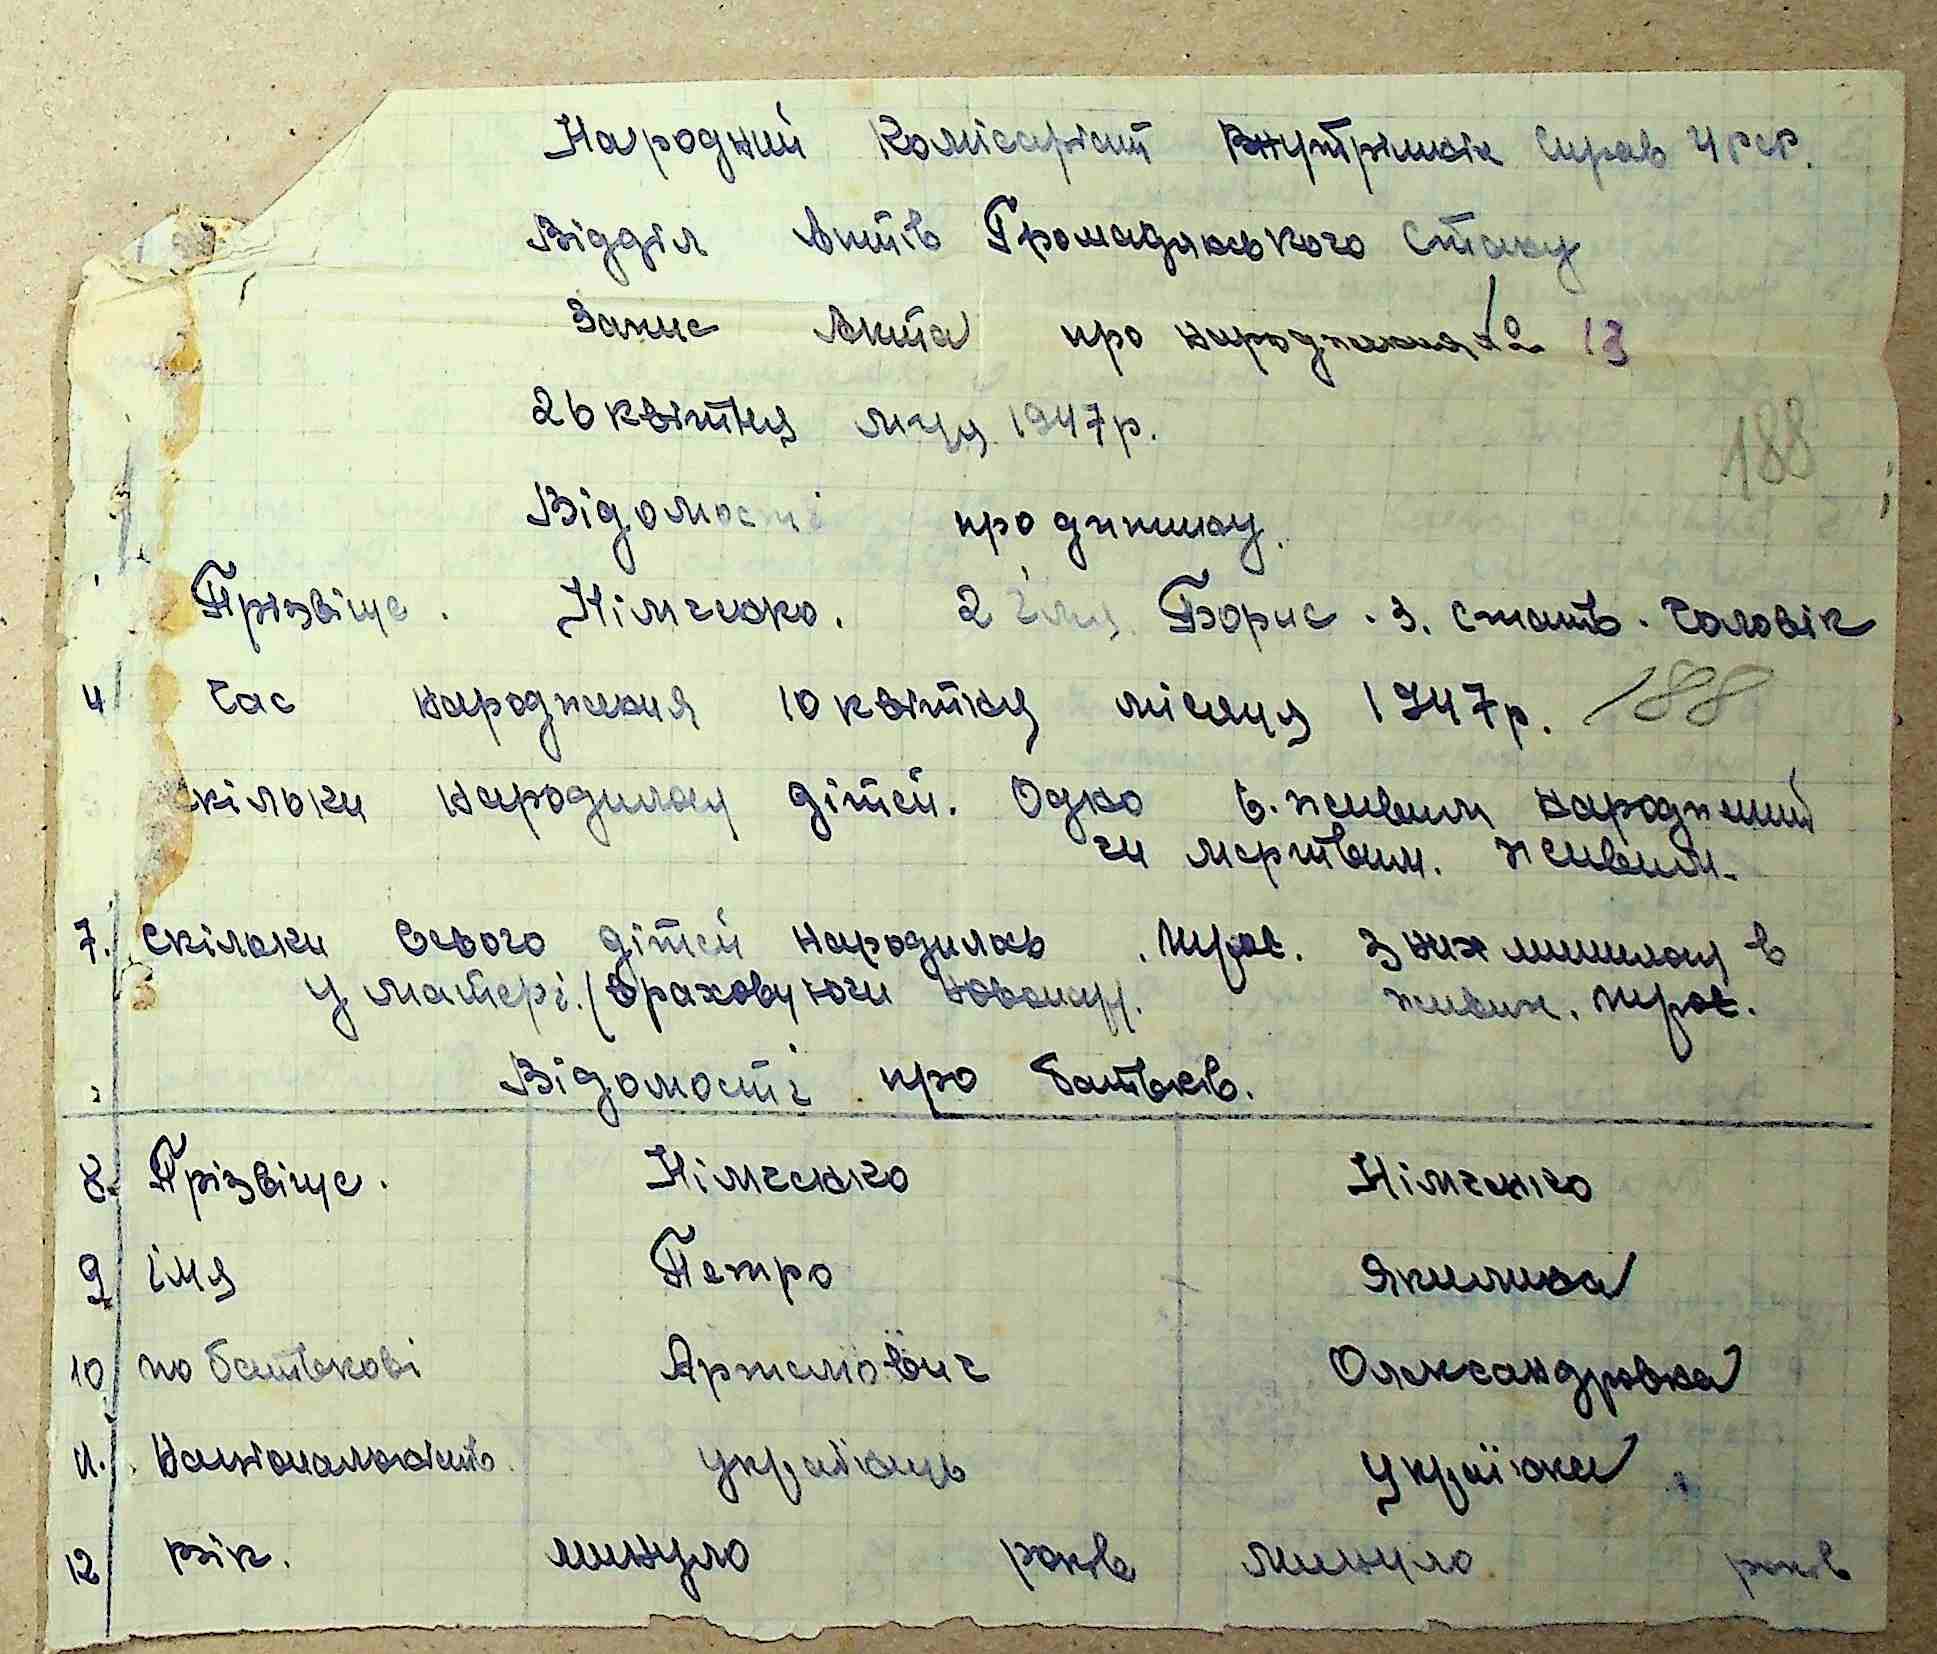 Народний Комісаріят Внутрішніх Справ УРСР.
Відділ Актів Громадянського Стану
Запис Акта про народження № 13
26 квітня м-ця 1947 р.
188
Відомості про дитину.
Прізвіще. Німченко. 2 імя. Борис. 3. стать. Чоловік
4 Час народження 10 квітня місяця 1947 р. 188
скільки народилося дітей. Одно 6. живим народжений
чи мертвим. живим.
7. скільки всього дітей народилось . 3 них лишилося в
у матері. (враховуючи живих.
Відомості про батьків.
8. Прізвіще. Німченко Німченко
9 імя Петро Якилина
10 по батькові Артемович Олександровна
11. Національність українець українка
12 рік. минуло років минуло років